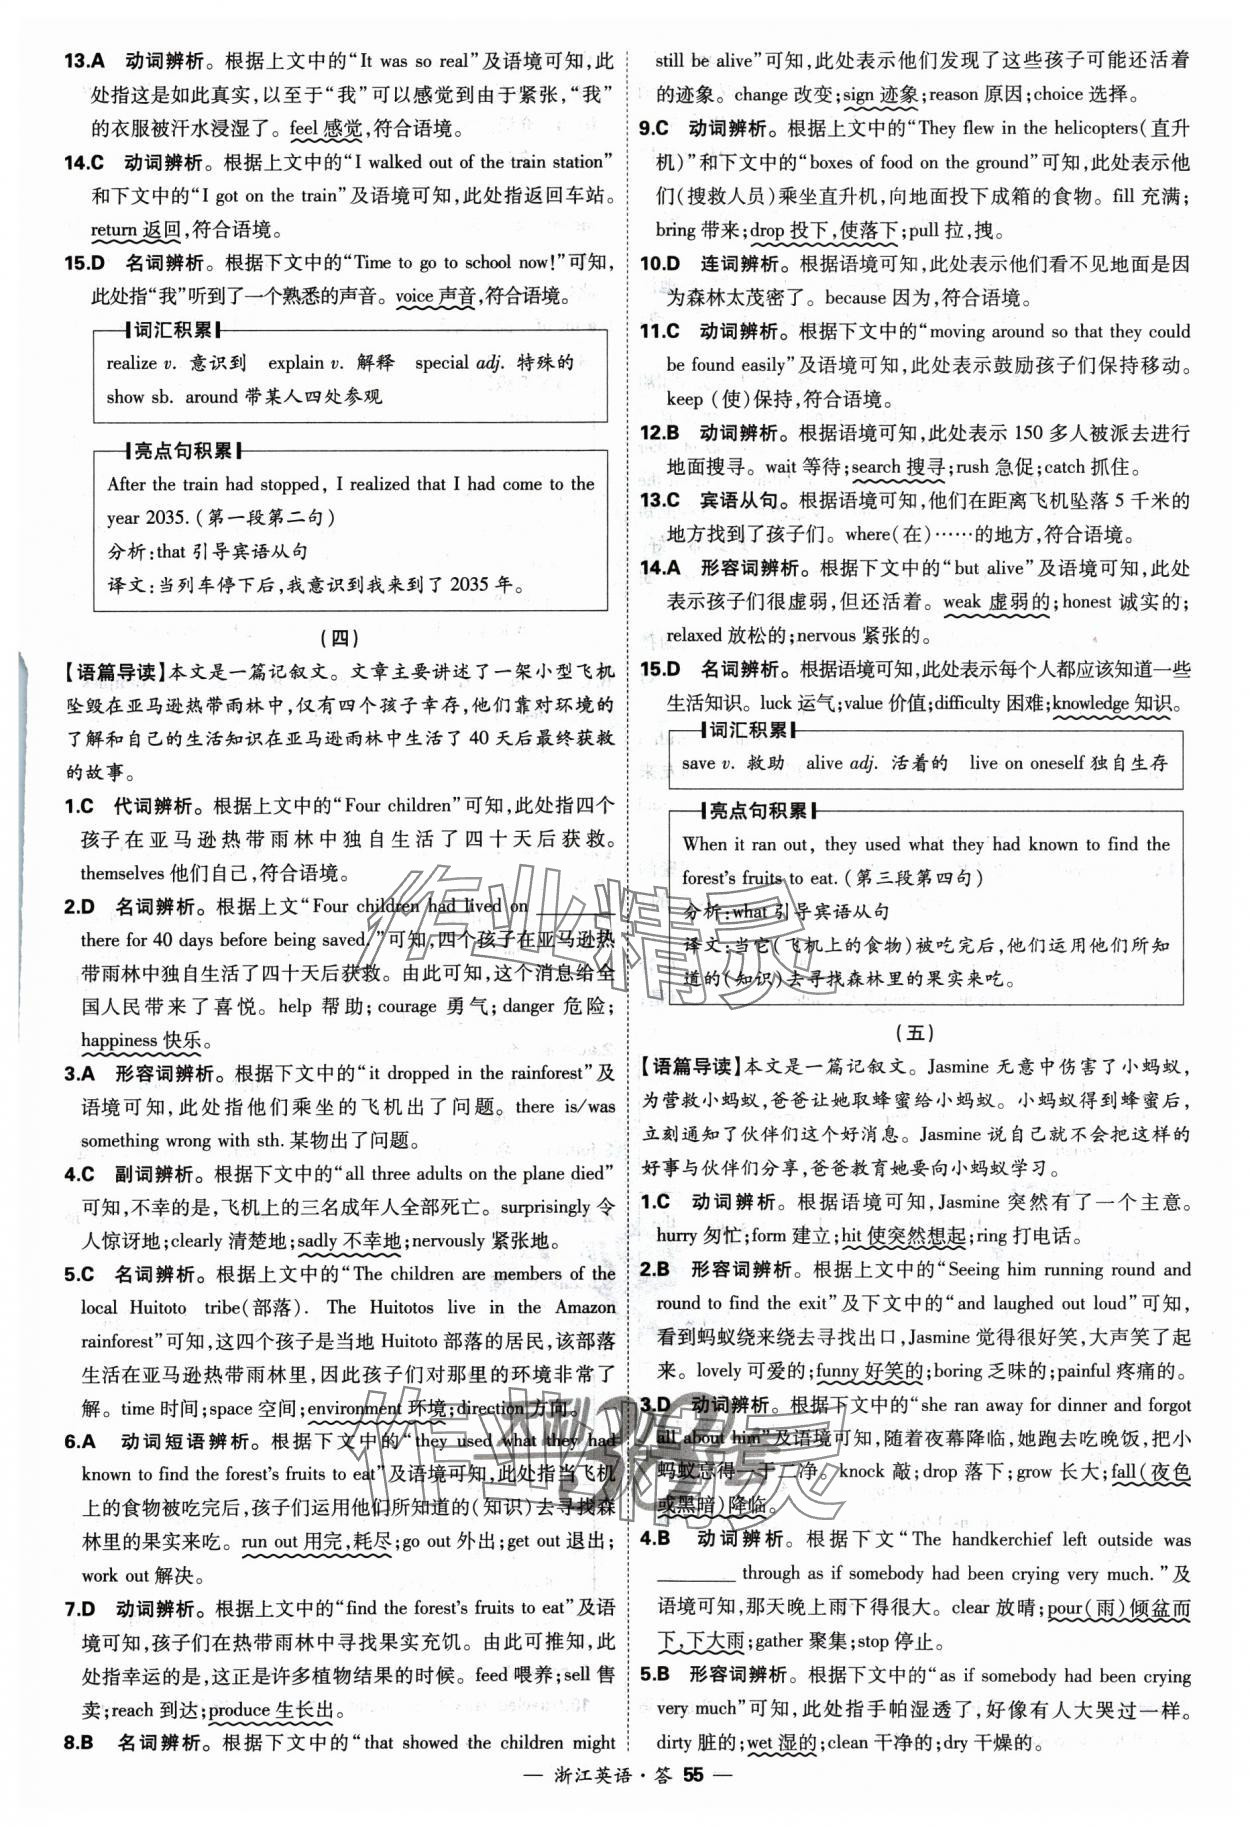 13.A 动词辨析。根据上文中的“It was so real”及语境可知,此
处指这是如此真实,以至于“我”可以感觉到由于紧张,“我”
的衣服被汗水浸湿了。feel 感觉,符合语境。
14.C 动词辨析。根据上文中的“I walked out of the train station”
和下文中的“I got on the train”及语境可知,此处指返回车站。
return 返回,符合语境。
15.D 名词辨析。根据下文中的“Time to go to school now!”可知,
此处指“我”听到了一个熟悉的声音。voice 声音,符合语境。
词汇积累
realize v. 意识到 explain v. 解释 special adj. 特殊的
show sb. around 带某人四处参观
亮点句积累
After the train had stopped, I realized that I had come to the
year 2035.(第一段第二句)
分析:that 引导宾语从句
译文:当列车停下后,我意识到我来到了 2035 年。
(四)
【语篇导读】本文是一篇记叙文。文章主要讲述了一架小型飞机
坠毁在亚马逊热带雨林中,仅有四个孩子幸存,他们靠对环境的
了解和自己的生活知识在亚马逊雨林中生活了 40 天后最终获救
的故事。
1.C 代词辨析。根据上文中的“Four children”可知,此处指四个
孩子在亚马逊热带雨林中独自生活了四十天后获救。
themselves 他们自己,符合语境。
2.D 名词辨析。根据上文“Four children had lived on ________
there for 40 days before being saved.”可知,四个孩子在亚马逊热
带雨林中独自生活了四十天后获救。由此可知,这个消息给全
国人民带来了喜悦。help 帮助;courage 勇气;danger 危险;
happiness 快乐。
3.A 形容词辨析。根据下文中的“it dropped in the rainforest”及
语境可知,此处指他们乘坐的飞机出了问题。there is/was
something wrong with sth.某物出了问题。
4.C 副词辨析。根据下文中的“all three adults on the plane died”
可知,不幸的是,飞机上的三名成年人全部死亡。surprisingly 令
人惊讶地;clearly 清楚地;sadly 不幸地;nervously 紧张地。
5.C 名词辨析。根据上文中的“The children are members of the
local Huitoto tribe(部落). The Huitotos live in the Amazon
rainforest”可知,这四个孩子是当地 Huitoto 部落的居民,该部落
生活在亚马逊热带雨林里,因此孩子们对那里的环境非常了
解。time 时间;space 空间;environment 环境;direction 方向。
6.A 动词短语辨析。根据下文中的“they used what they had
known to find the forest's fruits to eat”及语境可知,此处指当飞机
上的食物被吃完后,孩子们运用他们所知道的(知识)去寻找森
林里的果实来吃。run out 用完,耗尽;go out 外出;get out 退出;
work out 解决。
7.D 动词辨析。根据上文中的“find the forest's fruits to eat”及语
境可知,孩子们在热带雨林中寻找果实充饥。由此可推知,此
处指幸运的是,这正是许多植物结果的时候。feed 喂养;sell 售
卖;reach 到达;produce 生长出。
8.B 名词辨析。根据下文中的“that showed the children might
still be alive”可知,此处表示他们发现了这些孩子可能还活着
的迹象。change 改变;sign 迹象;reason 原因;choice 选择。
9.C 动词辨析。根据上文中的“They flew in the helicopters(直升
机)”和下文中的“boxes of food on the ground”可知,此处表示他
们(搜救人员)乘坐直升机,向地面投下成箱的食物。fill 充满;
bring 带来;drop 投下,使落下;pull 拉,拽。
10.D 连词辨析。根据语境可知,此处表示他们看不见地面是因
为森林太茂密了。because 因为,符合语境。
11.C 动词辨析。根据下文中的“moving around so that they could
be found easily”及语境可知,此处表示鼓励孩子们保持移动。
keep (使)保持,符合语境。
12.B 动词辨析。根据语境可知,此处表示 150 多人被派去进行
地面搜寻。wait 等待;search 搜寻;rush 急促;catch 抓住。
13.C 宾语从句。根据语境可知,他们在距离飞机坠落 5 千米的
地方找到了孩子们。where(在)……的地方,符合语境。
14.A 形容词辨析。根据下文中的“but alive”及语境可知,此处
表示孩子们很虚弱,但还活着。weak 虚弱的;honest 诚实的;
relaxed 放松的;nervous 紧张的。
15.D 名词辨析。根据语境可知,此处表示每个人都应该知道一些
生活知识。luck 运气;value 价值;difficulty 困难;knowledge 知识。
词汇积累
save v. 救助 alive adj. 活着的 live on oneself 独自生存
亮点句积累
When it ran out, they used what they had known to find the
forest's fruits to eat.(第三段第四句)
分析:what 引导宾语从句
译文:当它(飞机上的食物)被吃完后,他们运用他们所知
道的(知识)去寻找森林里的果实来吃。
(五)
【语篇导读】本文是一篇记叙文。Jasmine 无意中伤害了小蚂蚁,
为营救小蚂蚁,爸爸让她取蜂蜜给小蚂蚁。小蚂蚁得到蜂蜜后,
立刻通知了伙伴们这个好消息。Jasmine 说自己就不会把这样的
好事与伙伴们分享,爸爸教育她要向小蚂蚁学习。
1.C 动词辨析。根据语境可知,Jasmine 突然有了一个主意。
hurry 匆忙;form 建立;hit 使突然想起;ring 打电话。
2.B 形容词辨析。根据上文中的“Seeing him running round and
round to find the exit”及下文中的“and laughed out loud”可知,
看到蚂蚁绕来绕去寻找出口,Jasmine 觉得很好笑,大声笑了起
来。lovely 可爱的;funny 好笑的;boring 乏味的;painful 疼痛的。
3.D 动词辨析。根据下文中的“she ran away for dinner and forgot
all about him”及语境可知,随着夜幕降临,她跑去吃晚饭,把小
蚂蚁忘得一干二净。knock 敲;drop 落下;grow 长大;fall(夜色
或黑暗)降临。
4.B 动词辨析。根据下文“The handkerchief left outside was
________ through as if somebody had been crying very much.”及
语境可知,那天晚上雨下得很大。clear 放晴;pour(雨)倾盆而
下,下大雨;gather 聚集;stop 停止。
5.B 形容词辨析。根据下文中的“as if somebody had been crying
very much”可知,此处指手帕湿透了,好像有人大哭过一样。
dirty 脏的;wet 湿的;clean 干净的;dry 干燥的。
— 浙江英语·答 55 —
作业精灵
作业精灵